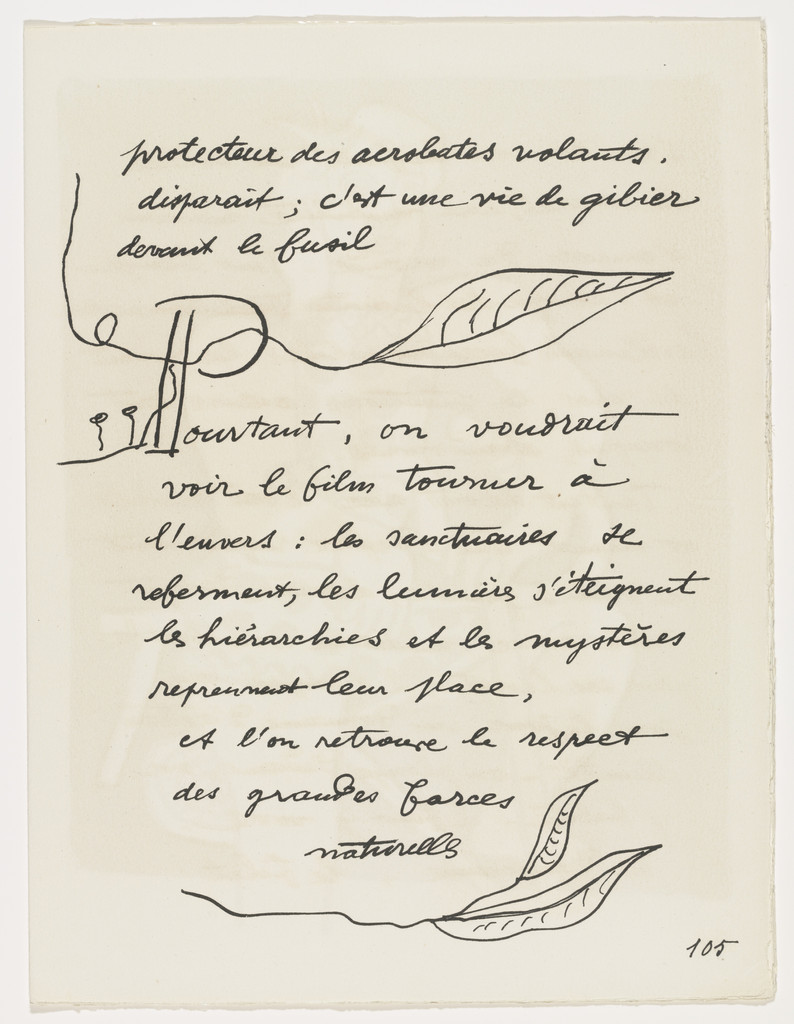 protecteur des acrobates volants.
disparait ; c'est une vie de gibier
devant le fusil
Pourtant, on voudrait
voir le film tourner à
l'envers : les sanctuaires se
referment, les lumières s'éteignent
les hiérarchies et les mystères
reprennent leur place,
et l'on retrouve le respect
des grandes forces
naturelles
105